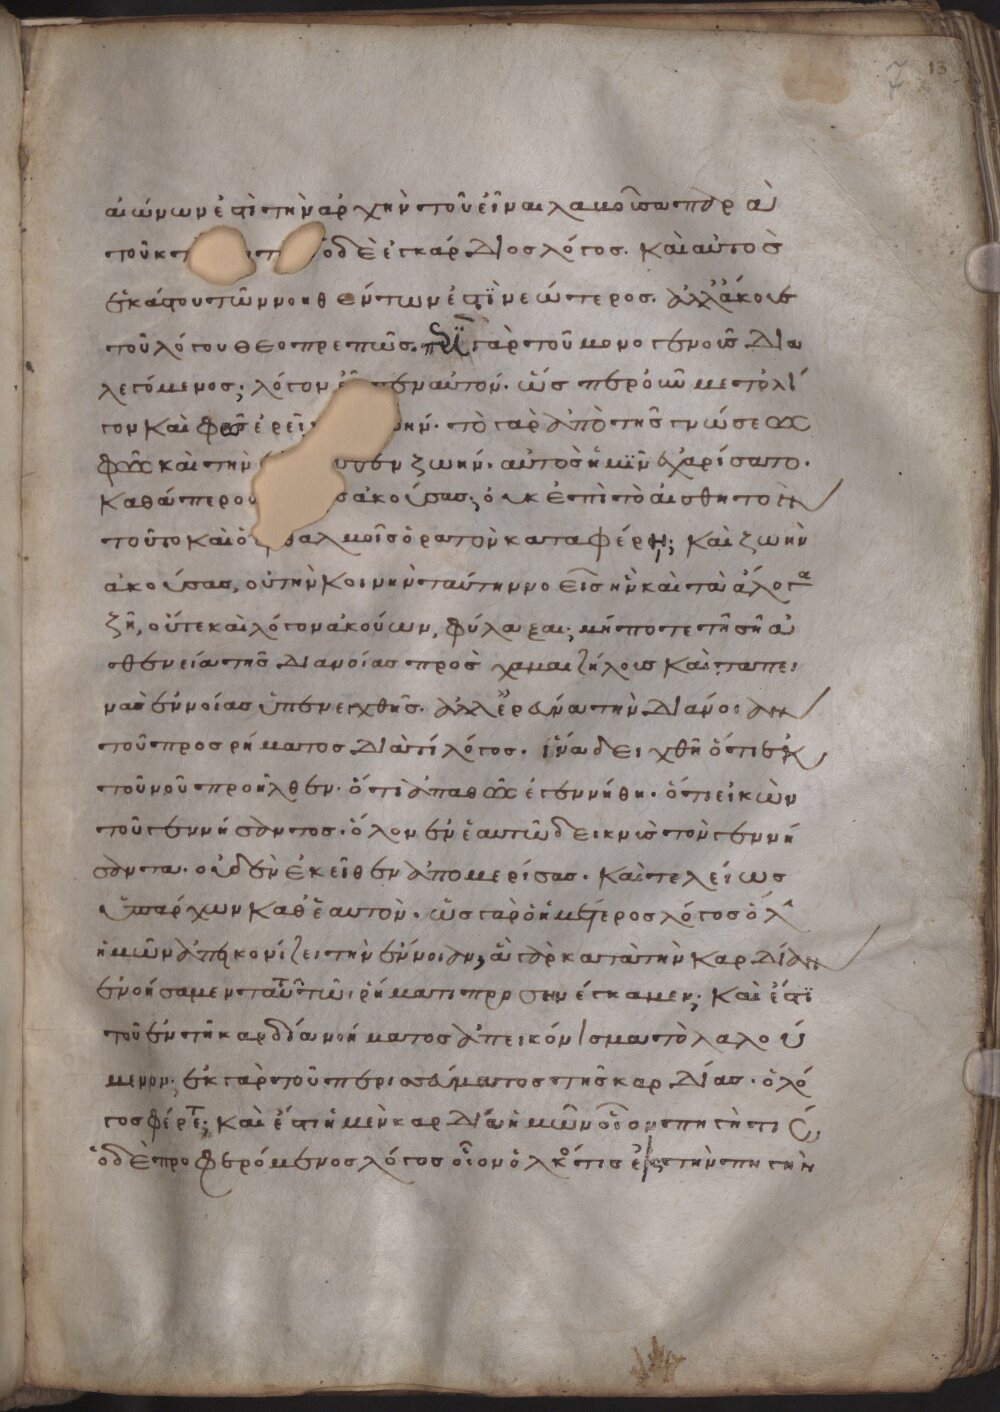 13
7
αἰώνων ἐστὶ τὴν ἀρχὴν τοῦ εἶναι λαμοῦσα παρ α
τοῦ ὁ δὲ ἐγκάρδιος λόγος. καὶ αὐτὸς
ἑκάστου τῶν νοηθέντων ἐστὶ νεώτερος. ἀλλ ἄκουε
τοῦ λόγου θεοπρεπῶς. περὶ γὰρ τοῦ μονογενοῦς δια
λεγόμενος; λόγον αὐτόν. ὡς προϊὼν μετ ὀλί
γον καὶ φῶς ἐρεῖ τὸ γὰρ ἀπὸ τῆς γνώσεως
φῶς καὶ τὴν ζωήν. αὐτὸς ἡμῖν ἐχαρίσατο.
καθάπερ ἀκούσας; οὐκ ἐπὶ τὸ αἰσθητὸν
τοῦτο καὶ ὀφθαλμοῖς ὁρατὸν καταφέρῃ; καὶ ζωὴν
ἀκούσας, οὐ τὴν κοινὴν ταύτην νοεῖς ἣν καὶ τὰ ἄλογα
ζῇ, οὕτε καὶ λόγον ἀκούων, φύλαξαι; μήποτε τῇ σῇ ἀ
σθενεία τῆς διανοίας πρὸς χαμαιζήλους καὶ ταπει
νὰς ἐννοίας ὑπενεχθῇς. ἀλλ ἐρεύνα τὴν διάνοιαν
τοῦ προσρήματος διατί λόγος. ἵνα δειχθῇ ὅτι ἐκ
τοῦ νοῦ προῆλθεν. ὅτι ἀπαθῶς ἐγεννήθη. ὅτι εἰκὼν
τοῦ γεννήσαντος. ὅλον ἐν ἑαυτῶ δεικνὺς τὸν γεννή
σαντα. οὐδὲν ἐκεῖθεν ἀπομερίσας. καὶ τελείως
ὑπάρχων καθ ἑαυτόν. ὡς γὰρ ὁ ἡμέτερος λόγος ὅλην
ἡμῶν ἀπεικονίζει τὴν ἔννοιαν, ἃ γὰρ κατὰ τὴν καρδίαν
ἐνοήσαμεν ταῦτα τῶ ῥήματι προσηνέγκαμεν; καὶ ἐστὶ
τοῦ ἐν τῇ καρδία νοήματος ἀπεικόνισμα τὸ λαλού
μενον. ἐκ γὰρ τοῦ περισσεύματος τῆς καρδίας. ὁ λό
γος φέρεται; καὶ ἔστι ἡ μὲν καρδία ἡμῶν οἷον πηγή τις,
ὁ δὲ προφερόμενος λόγος οἷον ὁλκός τις ἐκ τὴν πηγὴν